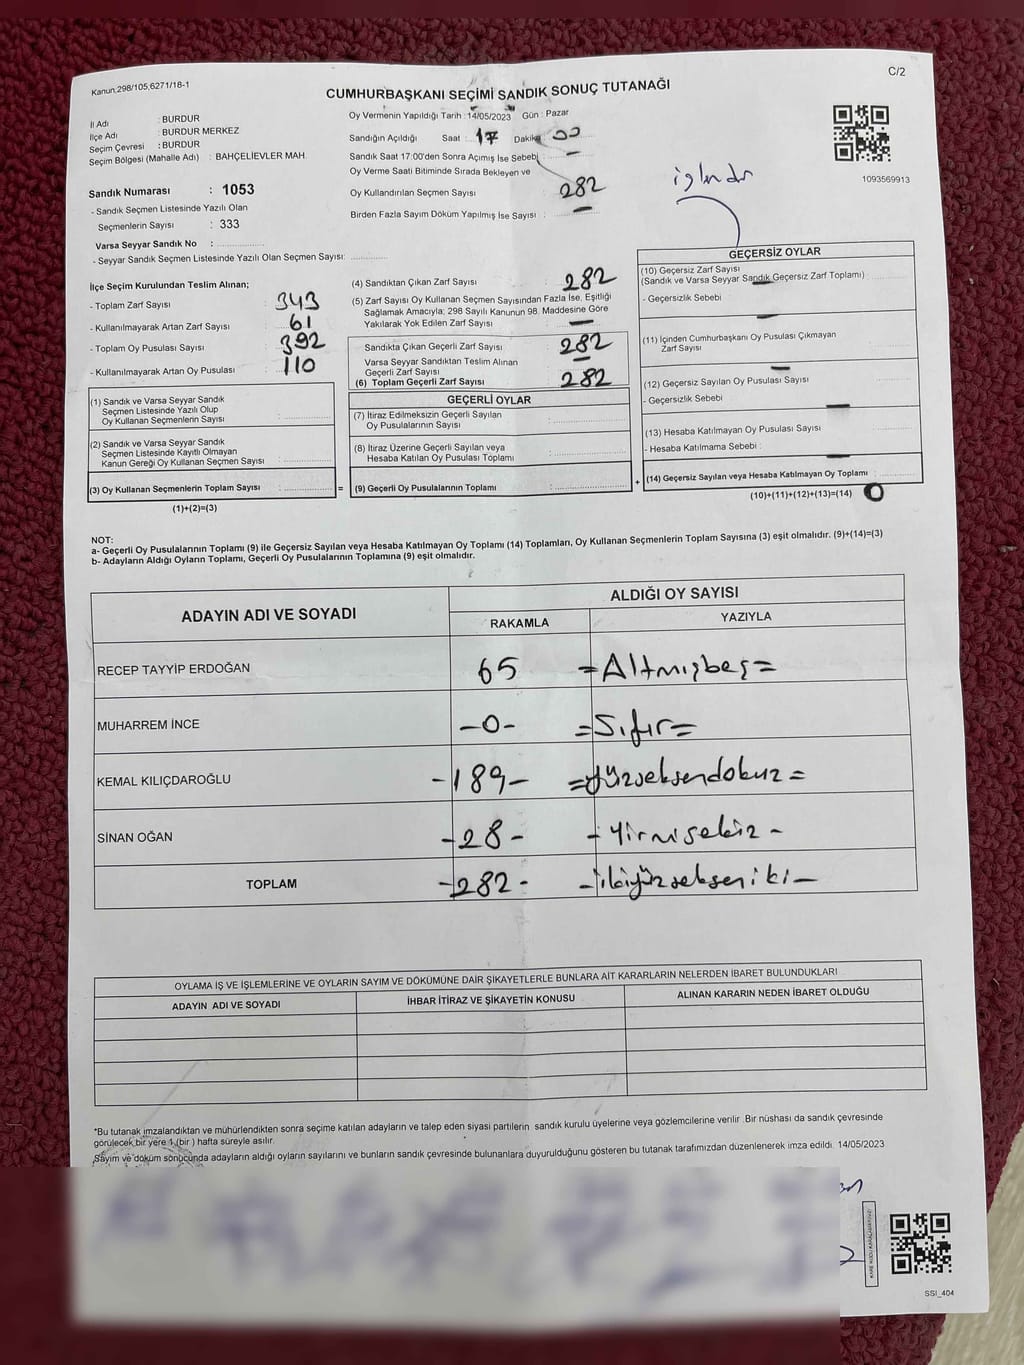 C/2
Kanun.298/105,6271/18-1
CUMHURBAŞKANI SEÇİMİ SANDIK SONUÇ TUTANAĞI
İl Adı : BURDUR
İlçe Adı : BURDUR MERKEZ
Seçim Çevresi : BURDUR
Seçim Bölgesi (Mahalle Adı) : BAHÇELİEVLER MAH.
Sandık Numarası : 1053
- Sandık Seçmen Listesinde Yazılı Olan
Seçmenlerin Sayısı : 333
Varsa Seyyar Sandık No :
- Seyyar Sandık Seçmen Listesinde Yazılı Olan Seçmen Sayısı:
Oy Vermenin Yapıldığı Tarih : 14/05/2023 Gün : Pazar
Sandığın Açıldığı Saat : 17 Dakika 00
Sandık Saat 17:00'den Sonra Açımış İse Sebebi : —
Oy Verme Saati Bitiminde Sırada Bekleyen ve
Oy Kullandırılan Seçmen Sayısı : 282
Birden Fazla Sayım Döküm Yapılmış İse Sayısı : —
işlendi
1093569913
İlçe Seçim Kurulundan Teslim Alınan;
- Toplam Zarf Sayısı : 343
- Kullanılmayarak Artan Zarf Sayısı : 61
- Toplam Oy Pusulası Sayısı : 392
- Kullanılmayarak Artan Oy Pusulası : 110
(1) Sandık ve Varsa Seyyar Sandık
Seçmen Listesinde Yazılı Olup
Oy Kullanan Seçmenlerin Sayısı :
(2) Sandık ve Varsa Seyyar Sandık
Seçmen Listesinde Kayıtlı Olmayan
Kanun Gereği Oy Kullanan Seçmen Sayısı :
(3) Oy Kullanan Seçmenlerin Toplam Sayısı : =
(1)+(2)=(3)
(4) Sandıktan Çıkan Zarf Sayısı : 282
(5) Zarf Sayısı Oy Kullanan Seçmen Sayısından Fazla İse, Eşitliği
Sağlamak Amacıyla; 298 Sayılı Kanunun 98. Maddesine Göre
Yakılarak Yok Edilen Zarf Sayısı : —
Sandıkta Çıkan Geçerli Zarf Sayısı : 282
Varsa Seyyar Sandıktan Teslim Alınan
Geçerli Zarf Sayısı : —
(6) Toplam Geçerli Zarf Sayısı : 282
GEÇERLİ OYLAR
(7) İtiraz Edilmeksizin Geçerli Sayılan
Oy Pusulalarının Sayısı :
(8) İtiraz Üzerine Geçerli Sayılan veya
Hesaba Katılan Oy Pusulası Toplamı :
(9) Geçerli Oy Pusulalarının Toplamı : +
GEÇERSİZ OYLAR
(10) Geçersiz Zarf Sayısı
(Sandık ve Varsa Seyyar Sandık Geçersiz Zarf Toplamı) : —
- Geçersizlik Sebebi : —
(11) İçinden Cumhurbaşkanı Oy Pusulası Çıkmayan
Zarf Sayısı : —
(12) Geçersiz Sayılan Oy Pusulası Sayısı :
- Geçersizlik Sebebi : —
(13) Hesaba Katılmayan Oy Pusulası Sayısı :
- Hesaba Katılmama Sebebi : —
(14) Geçersiz Sayılan veya Hesaba Katılmayan Oy Toplamı :
(10)+(11)+(12)+(13)=(14) 0
NOT:
a- Geçerli Oy Pusulalarının Toplamı (9) ile Geçersiz Sayılan veya Hesaba Katılmayan Oy Toplamı (14) Toplamları, Oy Kullanan Seçmenlerin Toplam Sayısına (3) eşit olmalıdır. (9)+(14)=(3)
b- Adayların Aldığı Oyların Toplamı, Geçerli Oy Pusulalarının Toplamına (9) eşit olmalıdır.
ADAYIN ADI VE SOYADI ALDIĞI OY SAYISI
RAKAMLA YAZIYLA
RECEP TAYYİP ERDOĞAN 65 =Altmışbeş=
MUHARREM İNCE -0- =Sıfır=
KEMAL KILIÇDAROĞLU -189- =Yüzseksendokuz=
SİNAN OĞAN -28- -Yirmisekiz-
TOPLAM -282- -ikiyüzsekseniki-
OYLAMA İŞ VE İŞLEMLERİNE VE OYLARIN SAYIM VE DÖKÜMÜNE DAİR ŞİKAYETLERLE BUNLARA AİT KARARLARIN NELERDEN İBARET BULUNDUKLARI
ADAYIN ADI VE SOYADI İHBAR İTİRAZ VE ŞİKAYETİN KONUSU ALINAN KARARIN NEDEN İBARET OLDUĞU
*Bu tutanak imzalandıktan ve mühürlendikten sonra seçime katılan adayların ve talep eden siyasi partilerin sandık kurulu üyelerine veya gözlemcilerine verilir .Bir nüshası da sandık çevresinde
görülecek bir yere 1 (bir ) hafta süreyle asılır.
Sayım ve döküm sonucunda adayların aldığı oyların sayılarını ve bunların sandık çevresinde bulunanlara duyurulduğunu gösteren bu tutanak tarafımızdan düzenlenerek imza edildi. 14/05/2023
SSİ_404